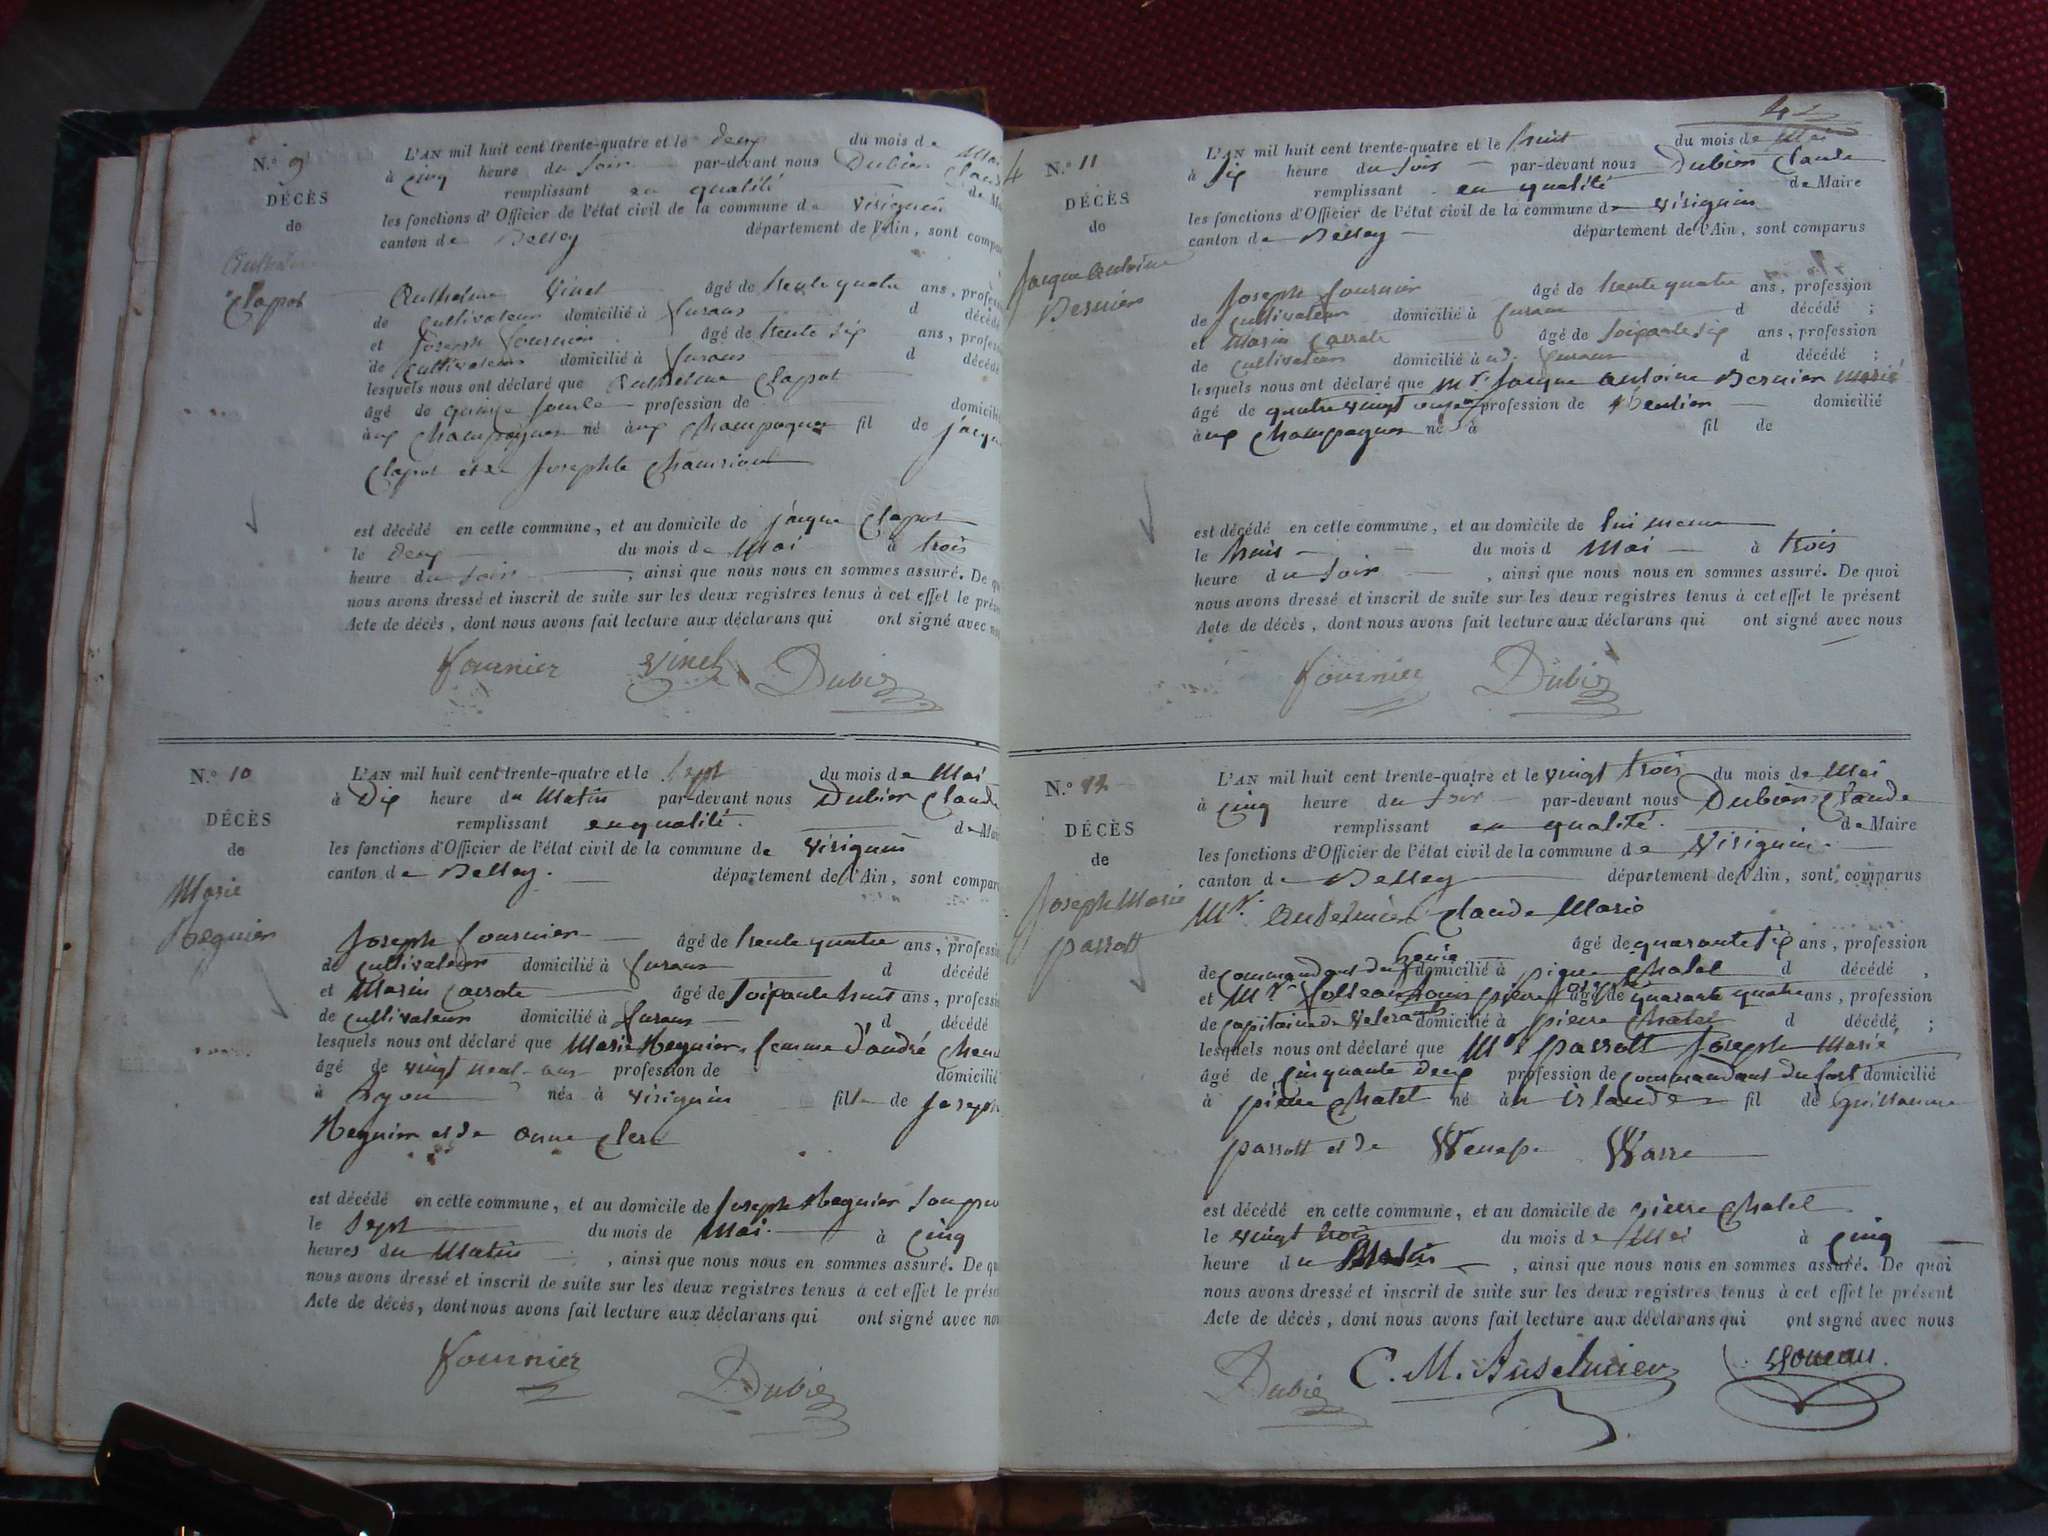 N.º 9
DÉCÈS
de
Clapot
L'AN mil huit cent trente-quatre et le deux du mois de Mai
à cinq heure du soir par-devant nous Dubien
remplissant en qualité
les fonctions d'Officier de l'état civil de la commune de Virignin
canton de Belley département de l'Ain, sont
Anthelme Vinet âgé de trente quatre ans,
de cultivateur domicilié à furans d décédé
et Joseph fournier âgé de trente six ans,
de cultivateur domicilié à furans d décédé
lesquels nous ont déclaré que Anthelme Clapot
âgé de quinze profession de
aux Champagnes né aux Champagnes fil de
Clapot et de Josephte
est décédé en cette commune, et au domicile de jacque Clapot
le deux du mois de Mai à trois
heure du soir, ainsi que nous nous en sommes assuré. De
nous avons dressé et inscrit de suite sur les deux registres tenus à cet effet le
Acte de décès, dont nous avons fait lecture aux déclarans qui ont signé avec
fournier Vinet Dubien
N.º 10
DÉCÈS
de
Marie
Regnier
L'AN mil huit cent trente-quatre et le sept du mois de Mai
à Dix heure du Matin par-devant nous Dubien Claude
remplissant en qualité
les fonctions d'Officier de l'état civil de la commune de Virignin
canton de Belley. département de l'Ain, sont
Joseph fournier âgé de trente quatre ans,
de cultivateur domicilié à furans d décédé
et Marin Carrote âgé de soixante huit ans,
de cultivateur domicilié à furans d décédé
lesquels nous ont déclaré que Marie Regnier, femme d'andré
âgé de vingt neuf ans profession de domicilié
à née à Virignin fille de Joseph
Regnier et de anne Clerc
est décédé en cette commune, et au domicile de Joseph Regnier
le sept du mois de Mai à cinq
heures du Matin, ainsi que nous nous en sommes assuré. De
nous avons dressé et inscrit de suite sur les deux registres tenus à cet effet le
Acte de décès, dont nous avons fait lecture aux déclarans qui ont signé avec
fournier Dubien
N.º 11
DÉCÈS
de
Jacque antoine
Bernier
L'AN mil huit cent trente-quatre et le huit du mois de Mai
à six heure du soir par-devant nous Dubien Claude
remplissant en qualité de Maire
les fonctions d'Officier de l'état civil de la commune de Virignin
canton de Belley département de l'Ain, sont comparus
Joseph fournier âgé de trente quatre ans, profession
de cultivateur domicilié à furans d décédé ;
et Marin Carrote âgé de soixante six ans, profession
de cultivateur domicilié à furans d décédé ;
lesquels nous ont déclaré que Mr. Jacque antoine Bernier
âgé de quatre vingt profession de Rentier domicilié
aux Champagnes né à fil de
est décédé en cette commune, et au domicile de lui meme
le huit du mois d Mai à trois
heure du soir, ainsi que nous nous en sommes assuré. De quoi
nous avons dressé et inscrit de suite sur les deux registres tenus à cet effet le présent
Acte de décès, dont nous avons fait lecture aux déclarans qui ont signé avec nous
fournier Dubien
N.º 12
DÉCÈS
de
Joseph Marie
parrott
L'AN mil huit cent trente-quatre et le vingt trois du mois de Mai
à cinq heure du soir par-devant nous Dubien Claude
remplissant en qualité. de Maire
les fonctions d'Officier de l'état civil de la commune de Virignin.
canton de Belley département de l'Ain, sont comparus
Mr. Anselmier Claude Marie
âgé de quarante six ans, profession
de commandant du génie domicilié à pierre Chatel d décédé,
et Mr louis pierre âgé de quarante quatre ans, profession
de capitaine de veterans domicilié à pierre Chatel d décédé ;
lesquels nous ont déclaré que Mr parrott Joseph Marie
âgé de cinquante deux profession de commandant du fort domicilié
à pierre Chatel né àn irlande fil de guillaume
parrott et de Warre
est décédé en cette commune, et au domicile de pierre Chatel
le vingt trois du mois de Mai à cinq
heure du Matin, ainsi que nous nous en sommes assuré. De quoi
nous avons dressé et inscrit de suite sur les deux registres tenus à cet effet le présent
Acte de décès, dont nous avons fait lecture aux déclarans qui ont signé avec nous
Dubien C. M. Anselmier